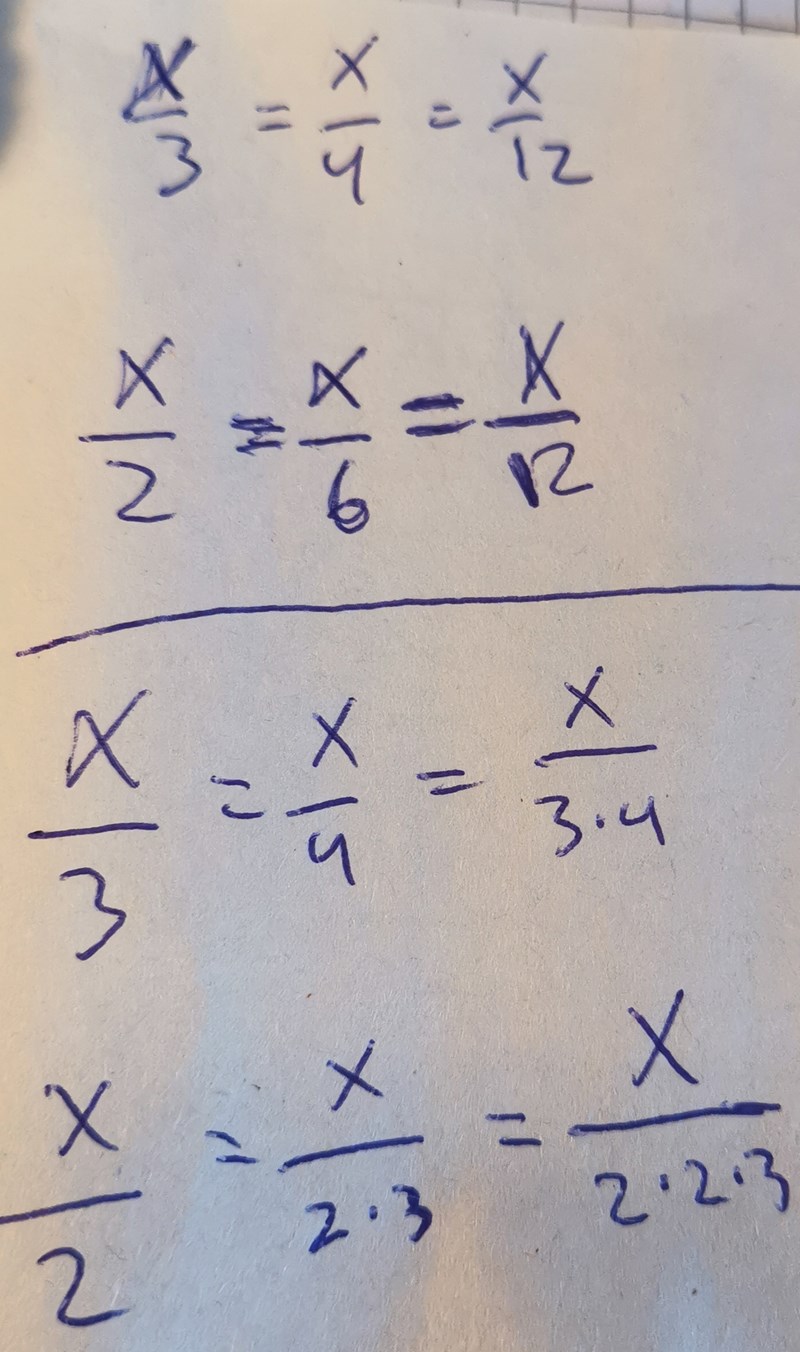 x/3 = x/4 = x/12
x/2 = x/6 = x/12
x/3 = x/4 = x/3·4
x/2 = x/2·3 = x/2·2·3